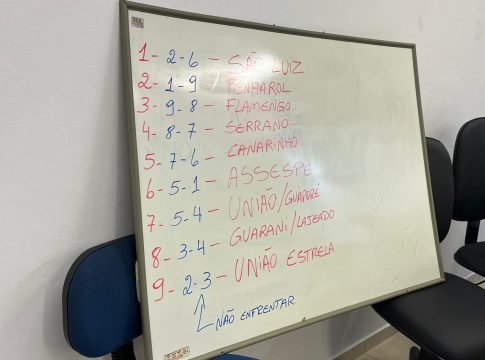 1- 2-6 - SÃO LUIZ
2- 1-9 - PENHAROL
3- 9-8 - FLAMENGO
4- 8-7 - SERRANO
5- 7-6 - CANARINHO
6- 5-1 - ASSESPE
7- 5-4 - UNIÃO/GUAPORÉ
8- 3-4 - GUARANI/LAJEADO
9- 2-3 - UNIÃO ESTRELA
NÃO ENFRENTAR